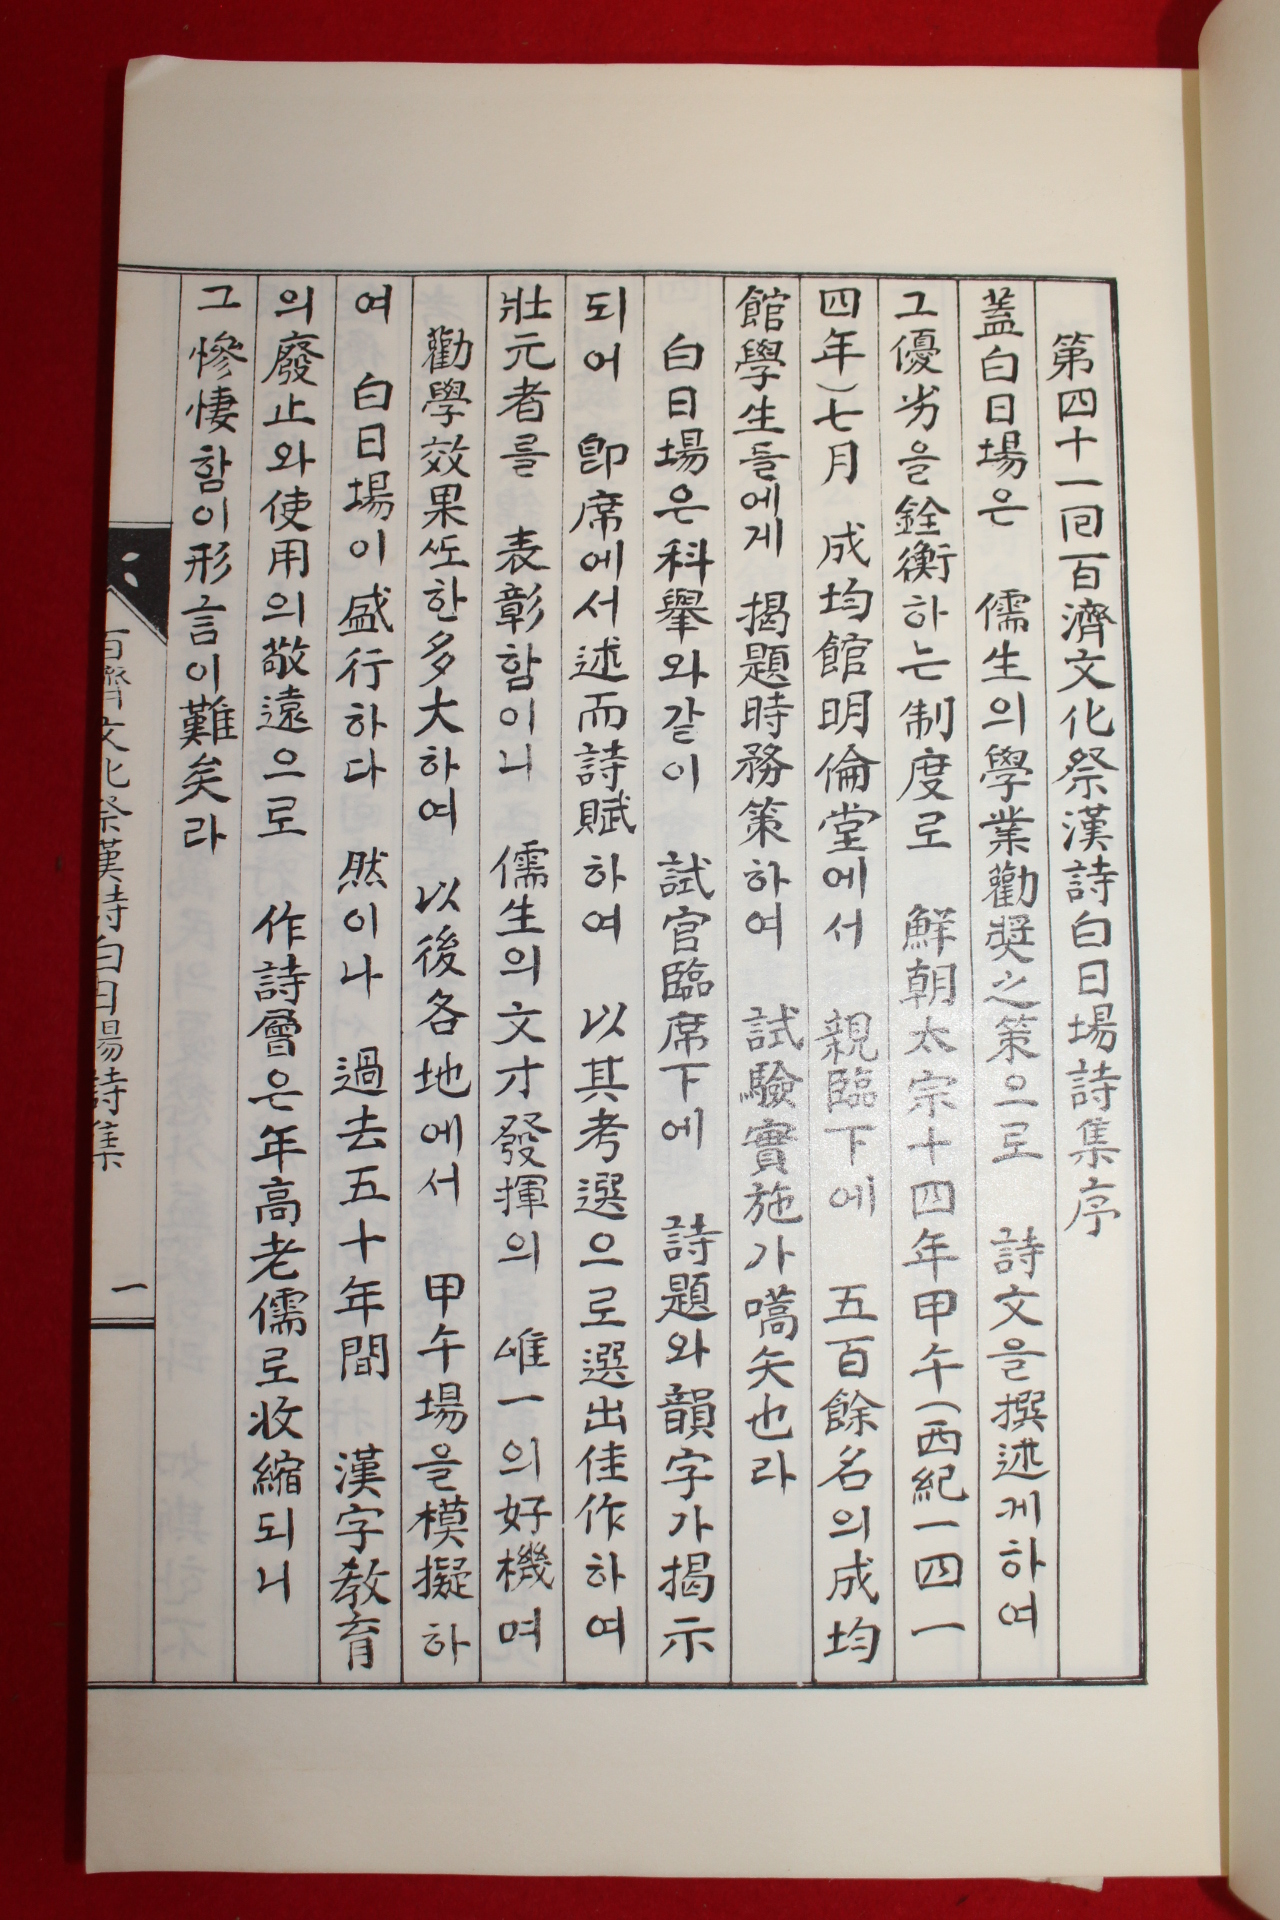 第四十一回百濟文化祭漢詩白日場詩集序
蓋白日場은 儒生의學業勸奬之策으로 詩文을撰述케하여
그優劣을銓衡하는制度로 鮮朝太宗十四年甲午(西紀一四一
四年)七月 成均館明倫堂에서 親臨下에 五百餘名의成均
館學生들에게 揭題時務策하여 試驗實施가嚆矢也라
白日場은科擧와같이 試官臨席下에 詩題와韻字가揭示
되어 卽席에서述而詩賦하여 以其考選으로選出佳作하여
壯元者를 表彰함이니 儒生의文才發揮의 唯一의好機며
勸學效果또한多大하여 以後各地에서 甲午場을模擬하
여 白日場이盛行하다 然이나 過去五十年間 漢字敎育
의廢止와使用의敬遠으로 作詩層은年高老儒로收縮되니
그慘悽함이形言이難矣라
百濟文化祭漢詩白日場詩集 一